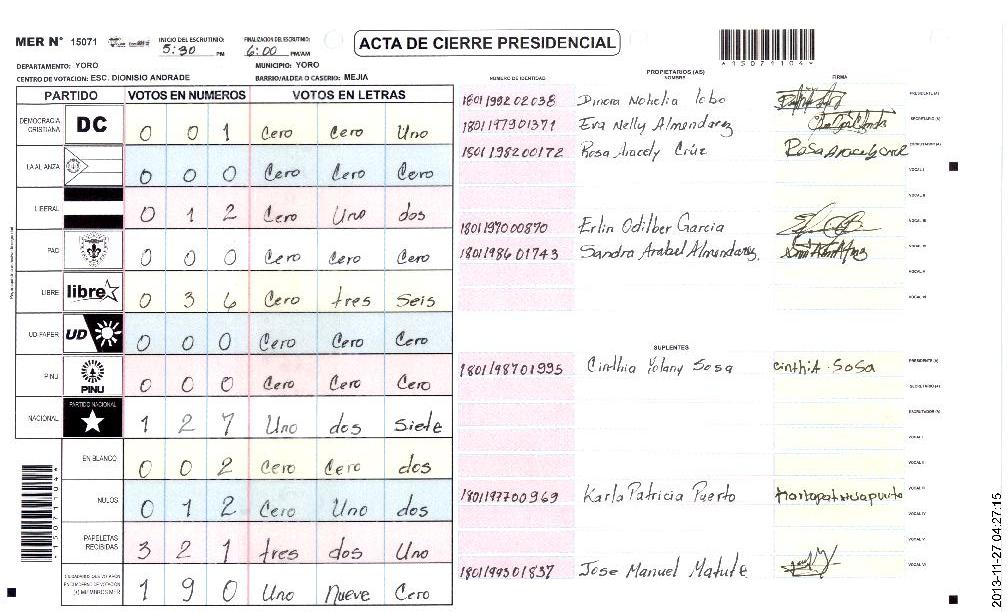 MER N° 15071 INICIO DEL ESCRUTINIO: 5:30 PM FINALIZACION DEL ESCRUTINIO: 6:00 PM/AM
ACTA DE CIERRE PRESIDENCIAL
*15071104*
DEPARTAMENTO: YORO MUNICIPIO: YORO
CENTRO DE VOTACION: ESC. DIONISIO ANDRADE BARRIO/ALDEA O CASERIO: MEJIA
PARTIDO VOTOS EN NUMEROS VOTOS EN LETRAS
DEMOCRACIA CRISTIANA DC 0 0 1 Cero Cero Uno
LA ALIANZA 0 0 0 Cero Cero Cero
LIBERAL 0 1 2 Cero Uno dos
PAC 0 0 0 Cero Cero Cero
LIBRE libre 0 3 6 Cero tres Seis
UD-FAPER UD 0 0 0 Cero Cero Cero
PINU PINU 0 0 0 Cero Cero Cero
NACIONAL PARTIDO NACIONAL 1 2 7 Uno dos Siete
EN BLANCO 0 0 2 Cero Cero dos
NULOS 0 1 2 Cero Uno dos
PAPELETAS RECIBIDAS 3 2 1 tres dos Uno
CIUDADANOS QUE VOTARON EN CUADERNO DE VOTACION (+) MIEMBROS MER 1 9 0 Uno Nueve Cero
*15071104*
PROPIETARIOS (AS)
NUMERO DE IDENTIDAD NOMBRE FIRMA
1801199202038 Dinora Nohelia lobo PRESIDENTE (A)
1801197901371 Eva Nelly Almendarez SECRETARIO (A)
1501198200172 Rosa Aracely Crúz Rosa Aracely Cruz ESCRUTADOR (A)
VOCAL I
VOCAL II
1801197000870 Erlin Odilber Garcia VOCAL III
1801198601743 Sandra Arabel Almendarez. VOCAL IV
VOCAL V
VOCAL VI
SUPLENTES
1801198701995 Cinthia Yolany Sosa cinthiA SoSa PRESIDENTE (A)
SECRETARIO (A)
ESCRUTADOR (A)
VOCAL I
VOCAL II
1801197700969 Karla Patricia Puerto VOCAL III
VOCAL IV
VOCAL V
1801199301837 Jose Manuel Matute VOCAL VI
2013-11-27 04:27:15